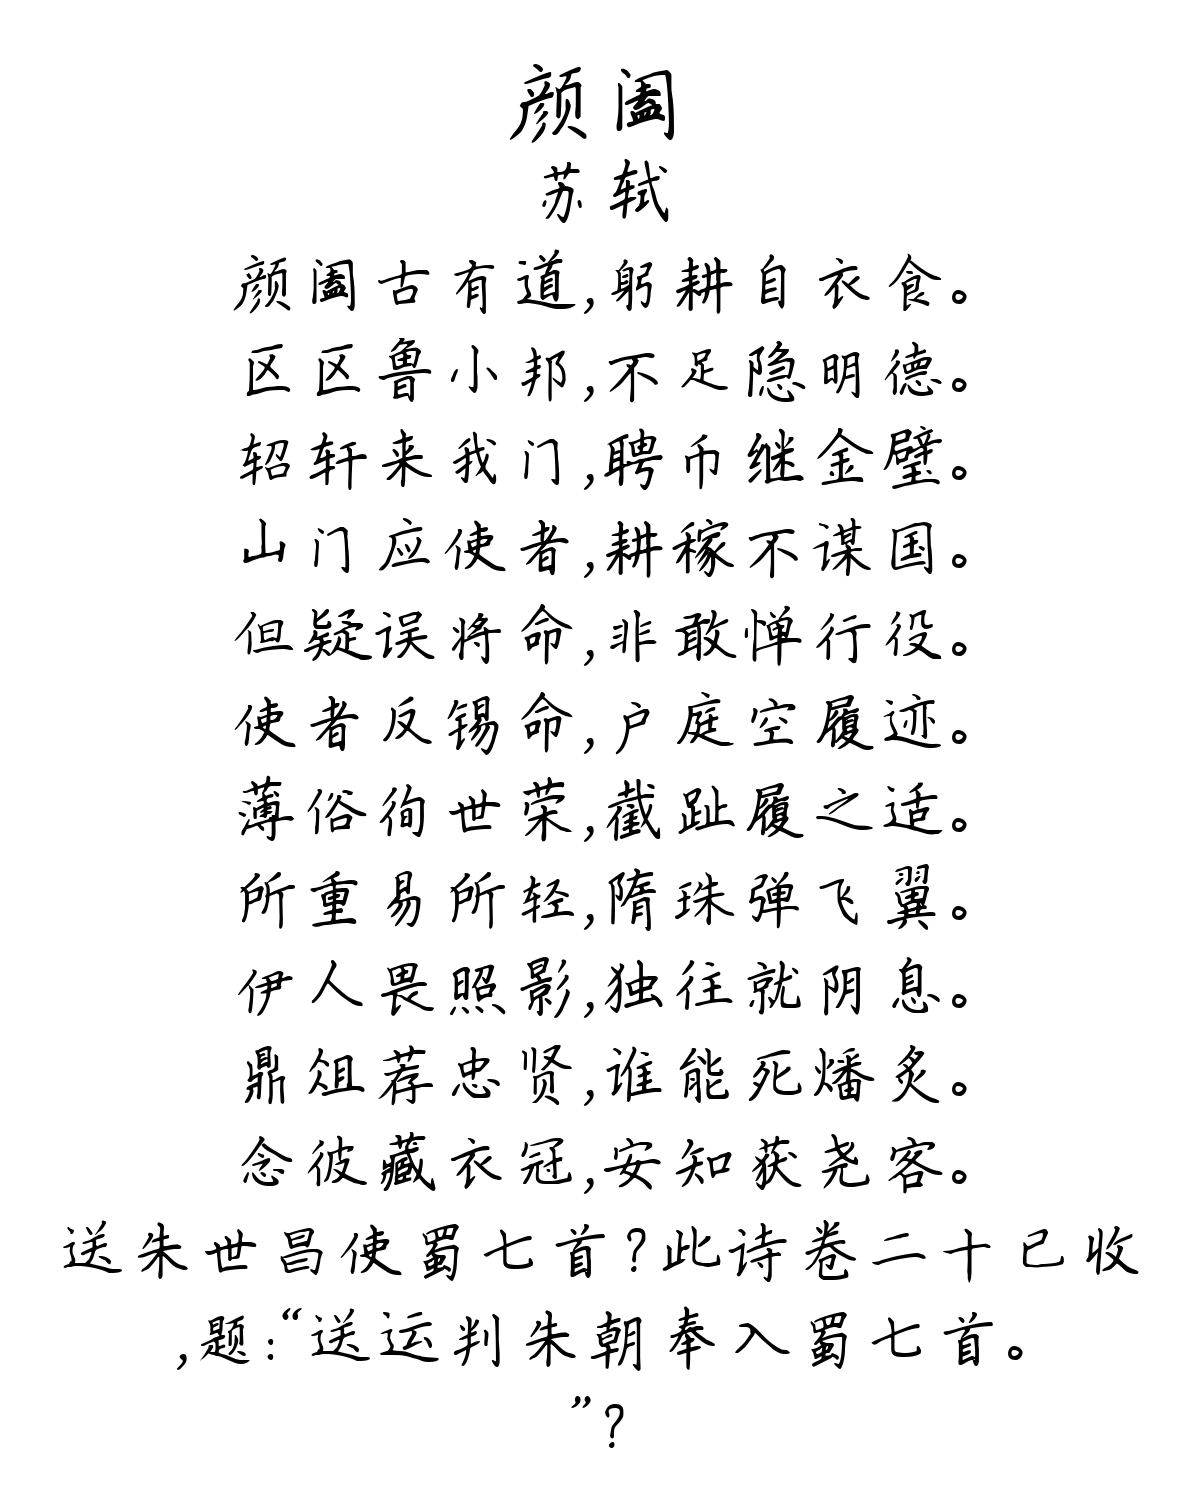 颜阖
苏轼
颜阖古有道,躬耕自衣食。
区区鲁小邦,不足隐明德。
轺轩来我门,聘币继金璧。
山门应使者,耕稼不谋国。
但疑误将命,非敢惮行役。
使者反锡命,户庭空履迹。
薄俗徇世荣,截趾履之适。
所重易所轻,隋珠弹飞翼。
伊人畏照影,独往就阴息。
鼎俎荐忠贤,谁能死燔炙。
念彼藏衣冠,安知获尧客。
送朱世昌使蜀七首?此诗卷二十已收
,题:“送运判朱朝奉入蜀七首。
”?